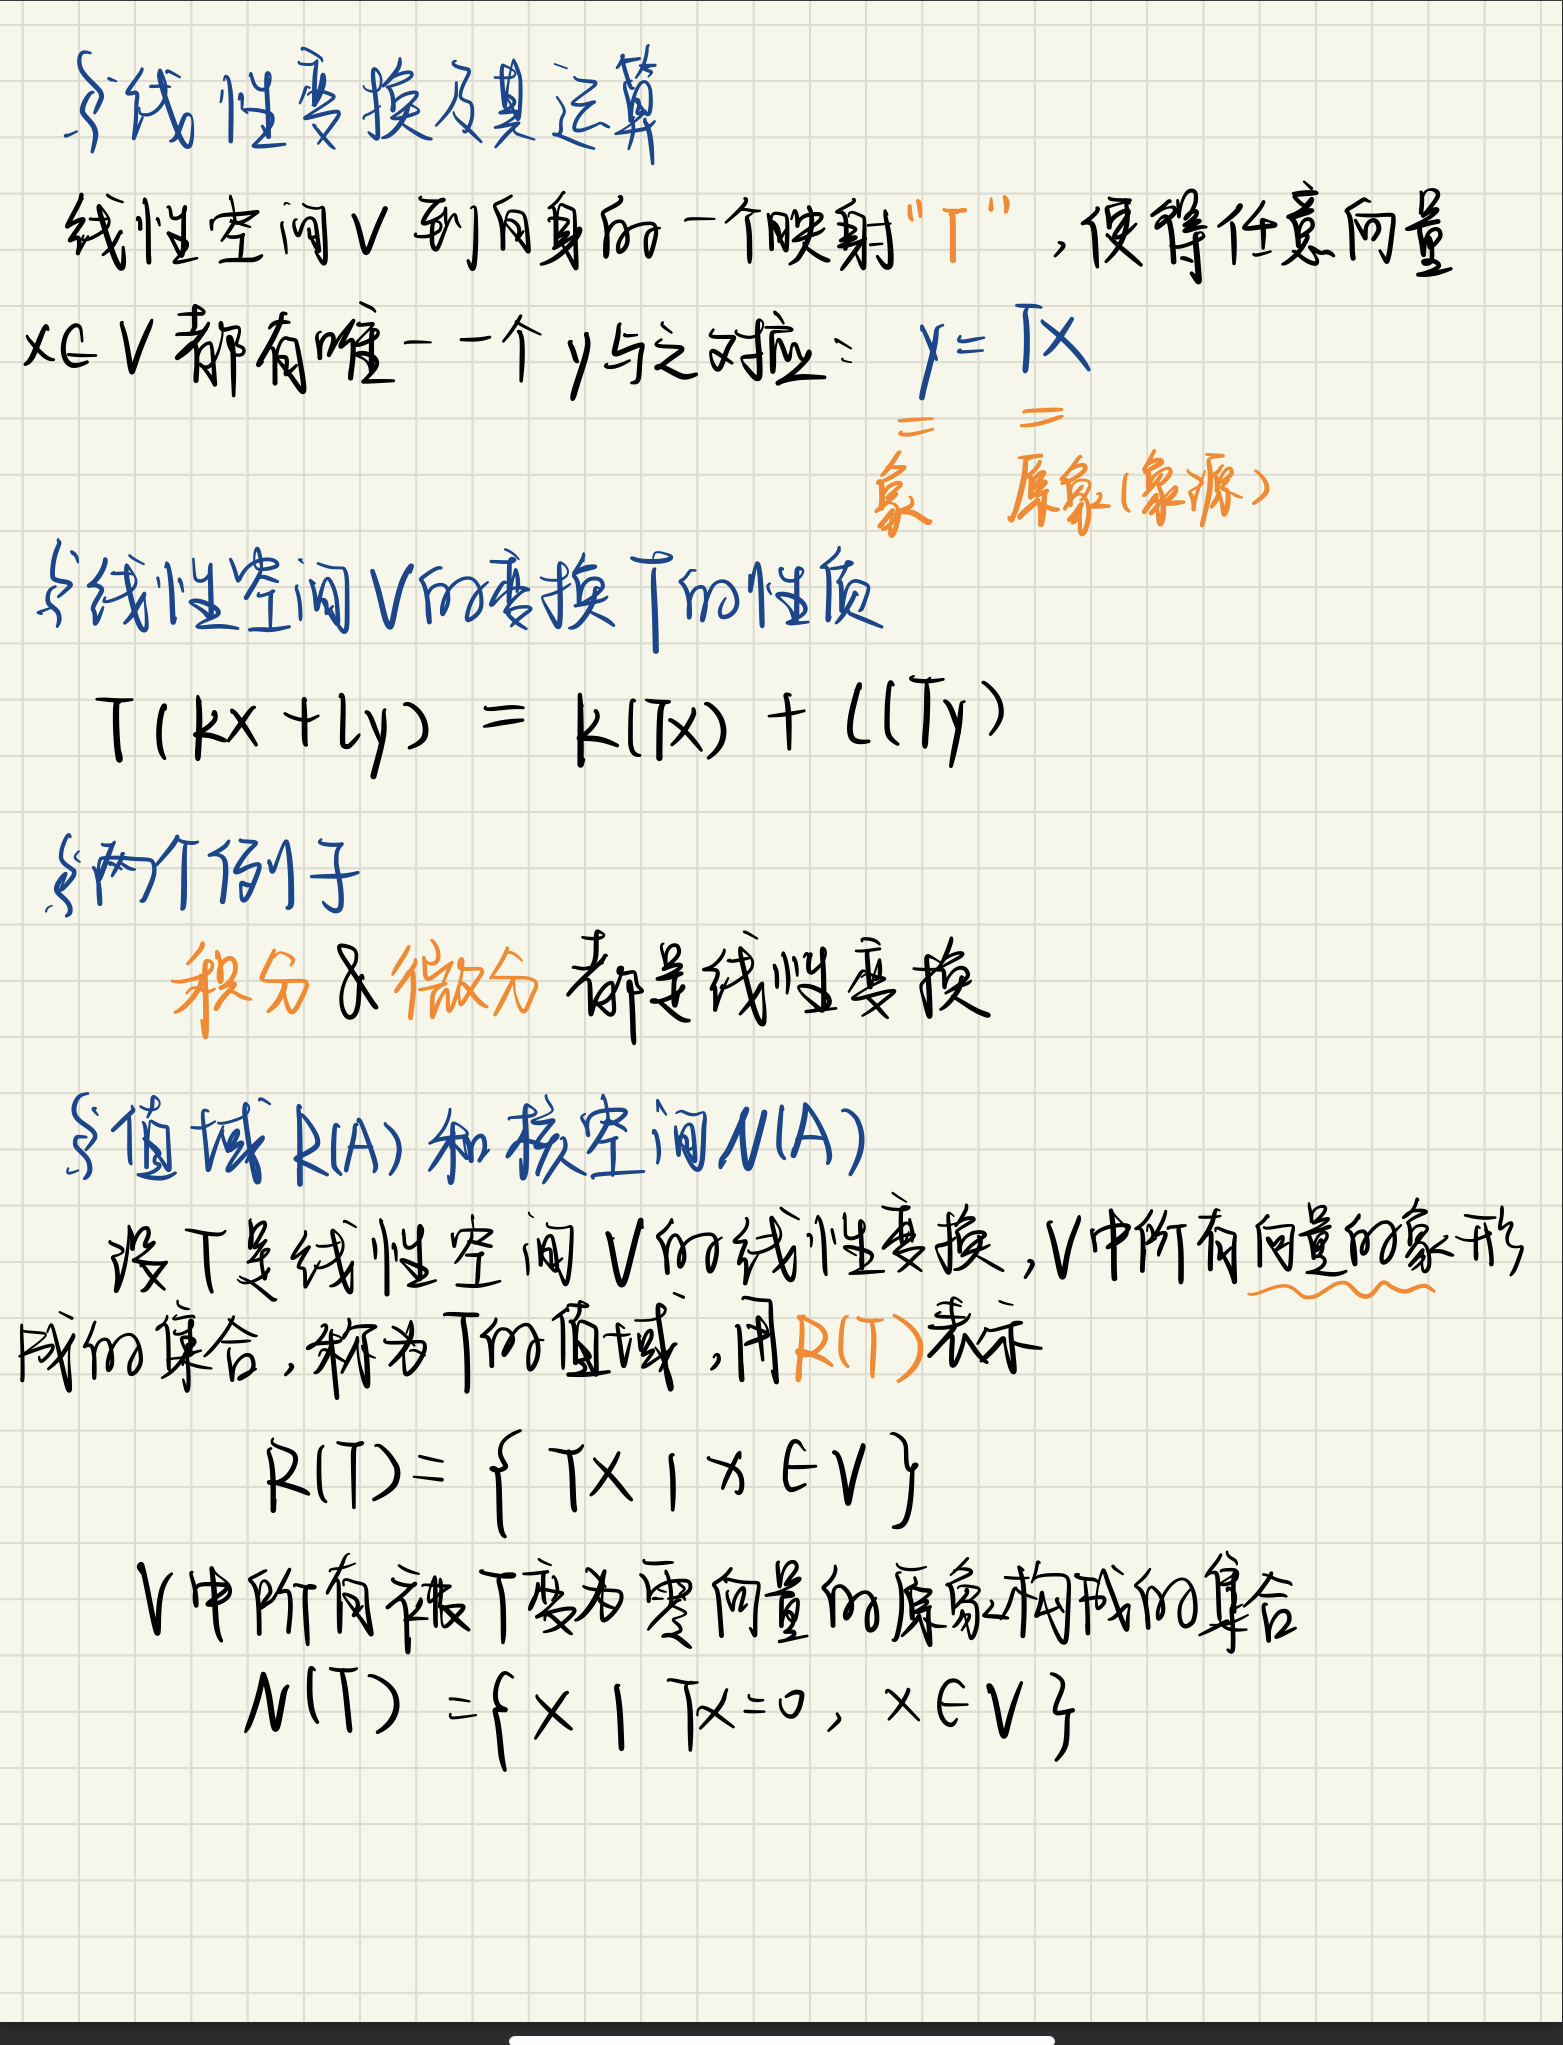 §线性变换及其运算
线性空间V到自身的一个映射"T",使得任意向量
x∈V都有唯一一个y与之对应: y=Tx
= =
象 原象(象源)
§线性空间V的变换T的性质
T(kx+ly) = k(Tx) + l(Ty)
§两个例子
积分&微分 都是线性变换
§值域R(A)和核空间N(A)
设T是线性空间V的线性变换,V中所有向量的象形
成的集合,称为T的值域,用R(T)表示
R(T)={ Tx | x∈V}
V中所有被T变为零向量的原象构成的集合
N(T) ={x | Tx=0, x∈V}